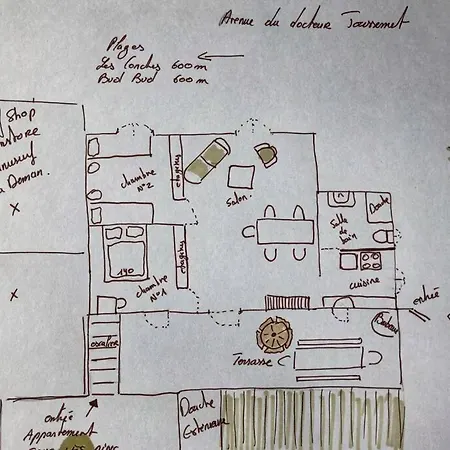 Avenue du docteur Joussemet
Plages
Les Conches 600m
Bud Bud 600m
Shop
Deman.
X
X
chambre
N°2
etagères
Salon
Salle
de
bain
Douche
cuisine
entrée
140
chambre
N°1
etagères
escalier
Terrasse
entrée
Appartement
Douche
Exterieure